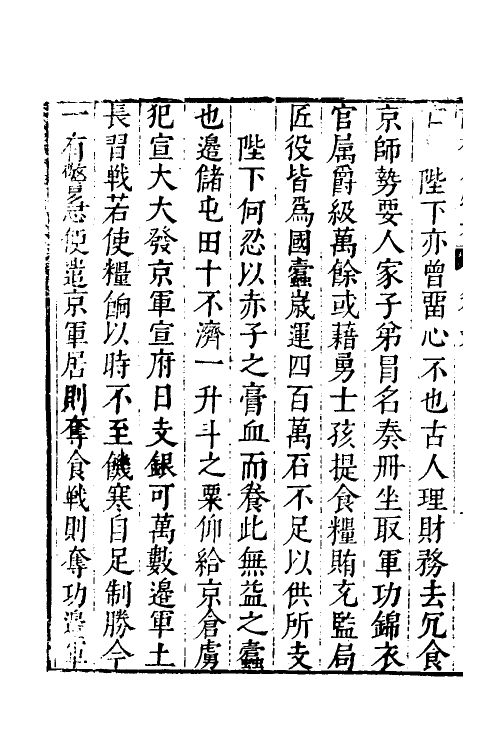 陛下亦曾畱心不也古人理財務去冗食
京師勢要人家子弟冒名奏冊坐取軍功錦衣
官属爵級萬餘或藉勇士孩提食糧賄充監局
匠役皆爲國蠹嵗運四百萬石不足以供所支
陛下何忍以赤子之膏血而養此無益之蠹
也邊儲屯田十不濟一升斗之粟仰給京倉虜
犯宣大大發京軍宣府日支銀可萬數邊軍土
長習戰若使糧餉以時不至饑寒自足制勝今
一有警急便遣京軍居則奪食戰則奪功邊軍